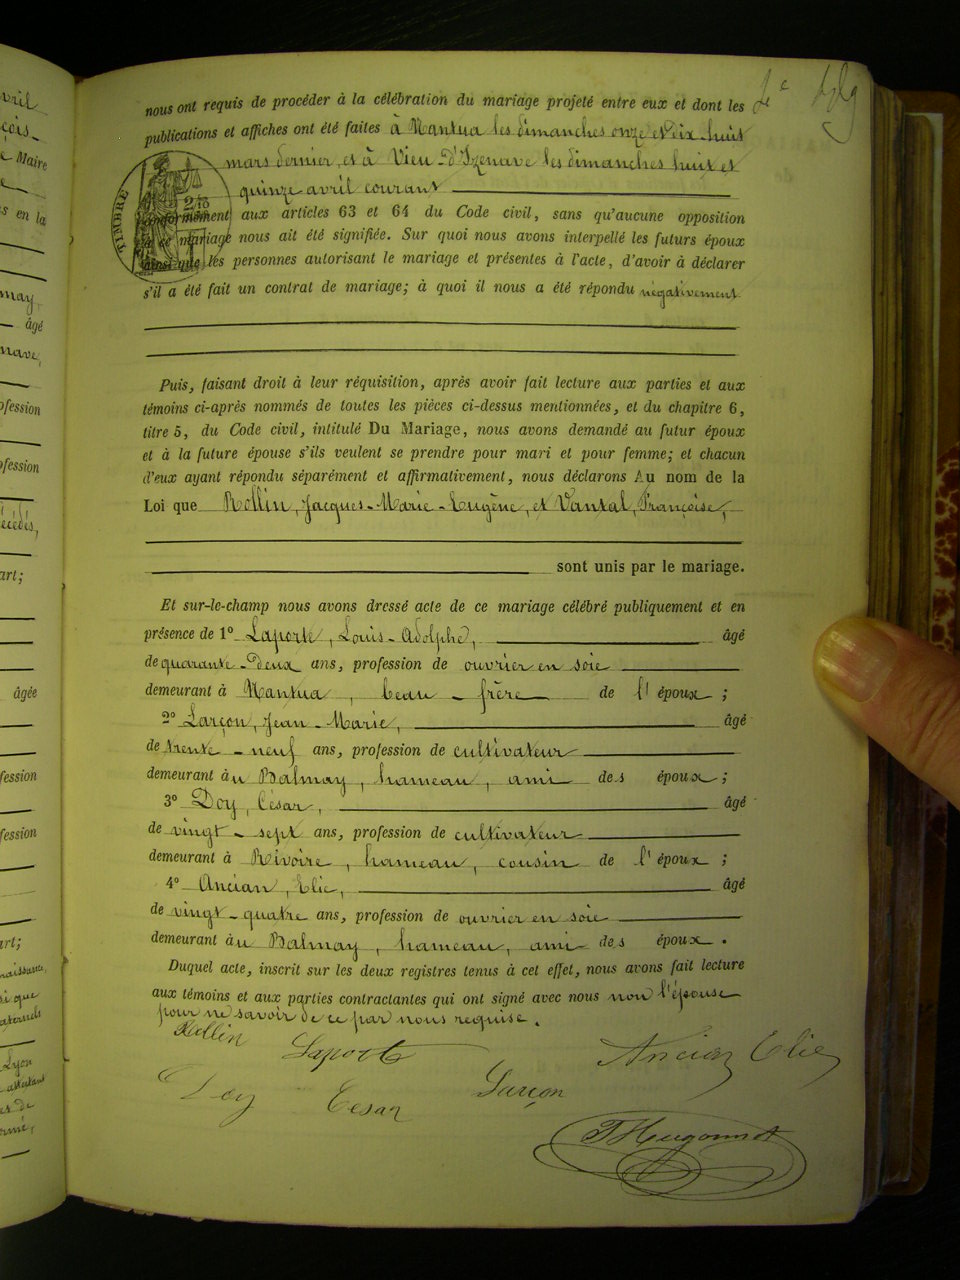 nous ont requis de procéder à la célébration du mariage projeté entre eux et dont les
publications et affiches ont été faites à Nantua les dimanches onze et dix-huit
mars dernier, et à Vieu-d'Izenave les dimanches huit et
quinze avril courant
TIMBRE
conformément aux articles 63 et 64 du Code civil, sans qu'aucune opposition
à ce mariage nous ait été signifiée. Sur quoi nous avons interpellé les futurs époux
ainsi que les personnes autorisant le mariage et présentes à l'acte, d'avoir à déclarer
s'il a été fait un contrat de mariage; à quoi il nous a été répondu négativement
Puis, faisant droit à leur réquisition, après avoir fait lecture aux parties et aux
témoins ci-après nommés de toutes les pièces ci-dessus mentionnées, et du chapitre 6,
titre 5, du Code civil, intitulé Du Mariage, nous avons demandé au futur époux
et à la future épouse s'ils veulent se prendre pour mari et pour femme; et chacun
d'eux ayant répondu séparément et affirmativement, nous déclarons Au nom de la
Loi que Rollin, Jacques-Marie-Eugène, et Vantal, Françoise,
sont unis par le mariage.
Et sur-le-champ nous avons dressé acte de ce mariage célébré publiquement et en
présence de 1° Laporte, Louis-Adolphe, âgé
de quarante-deux ans, profession de ouvrier en soie
demeurant à Nantua, beau-frère de l'époux ;
2° Larçon, Jean-Marie, âgé
de trente-neuf ans, profession de cultivateur
demeurant àu Balmay, hameau, ami des époux ;
3° Doy, César, âgé
de vingt-sept ans, profession de cultivateur
demeurant à Rivoire, hameau, cousin de l'époux ;
4° Ancian, Elie, âgé
de vingt-quatre ans, profession de ouvrier en soie
demeurant àu Balmay, hameau, ami des époux.
Duquel acte, inscrit sur les deux registres tenus à cet effet, nous avons fait lecture
aux témoins et aux parties contractantes qui ont signé avec nous non l'épouse
pour ne savoir de ce par nous requise.
Rollin Laporte Ancian Elie
Doy Cesar Larçon
Hugonnot